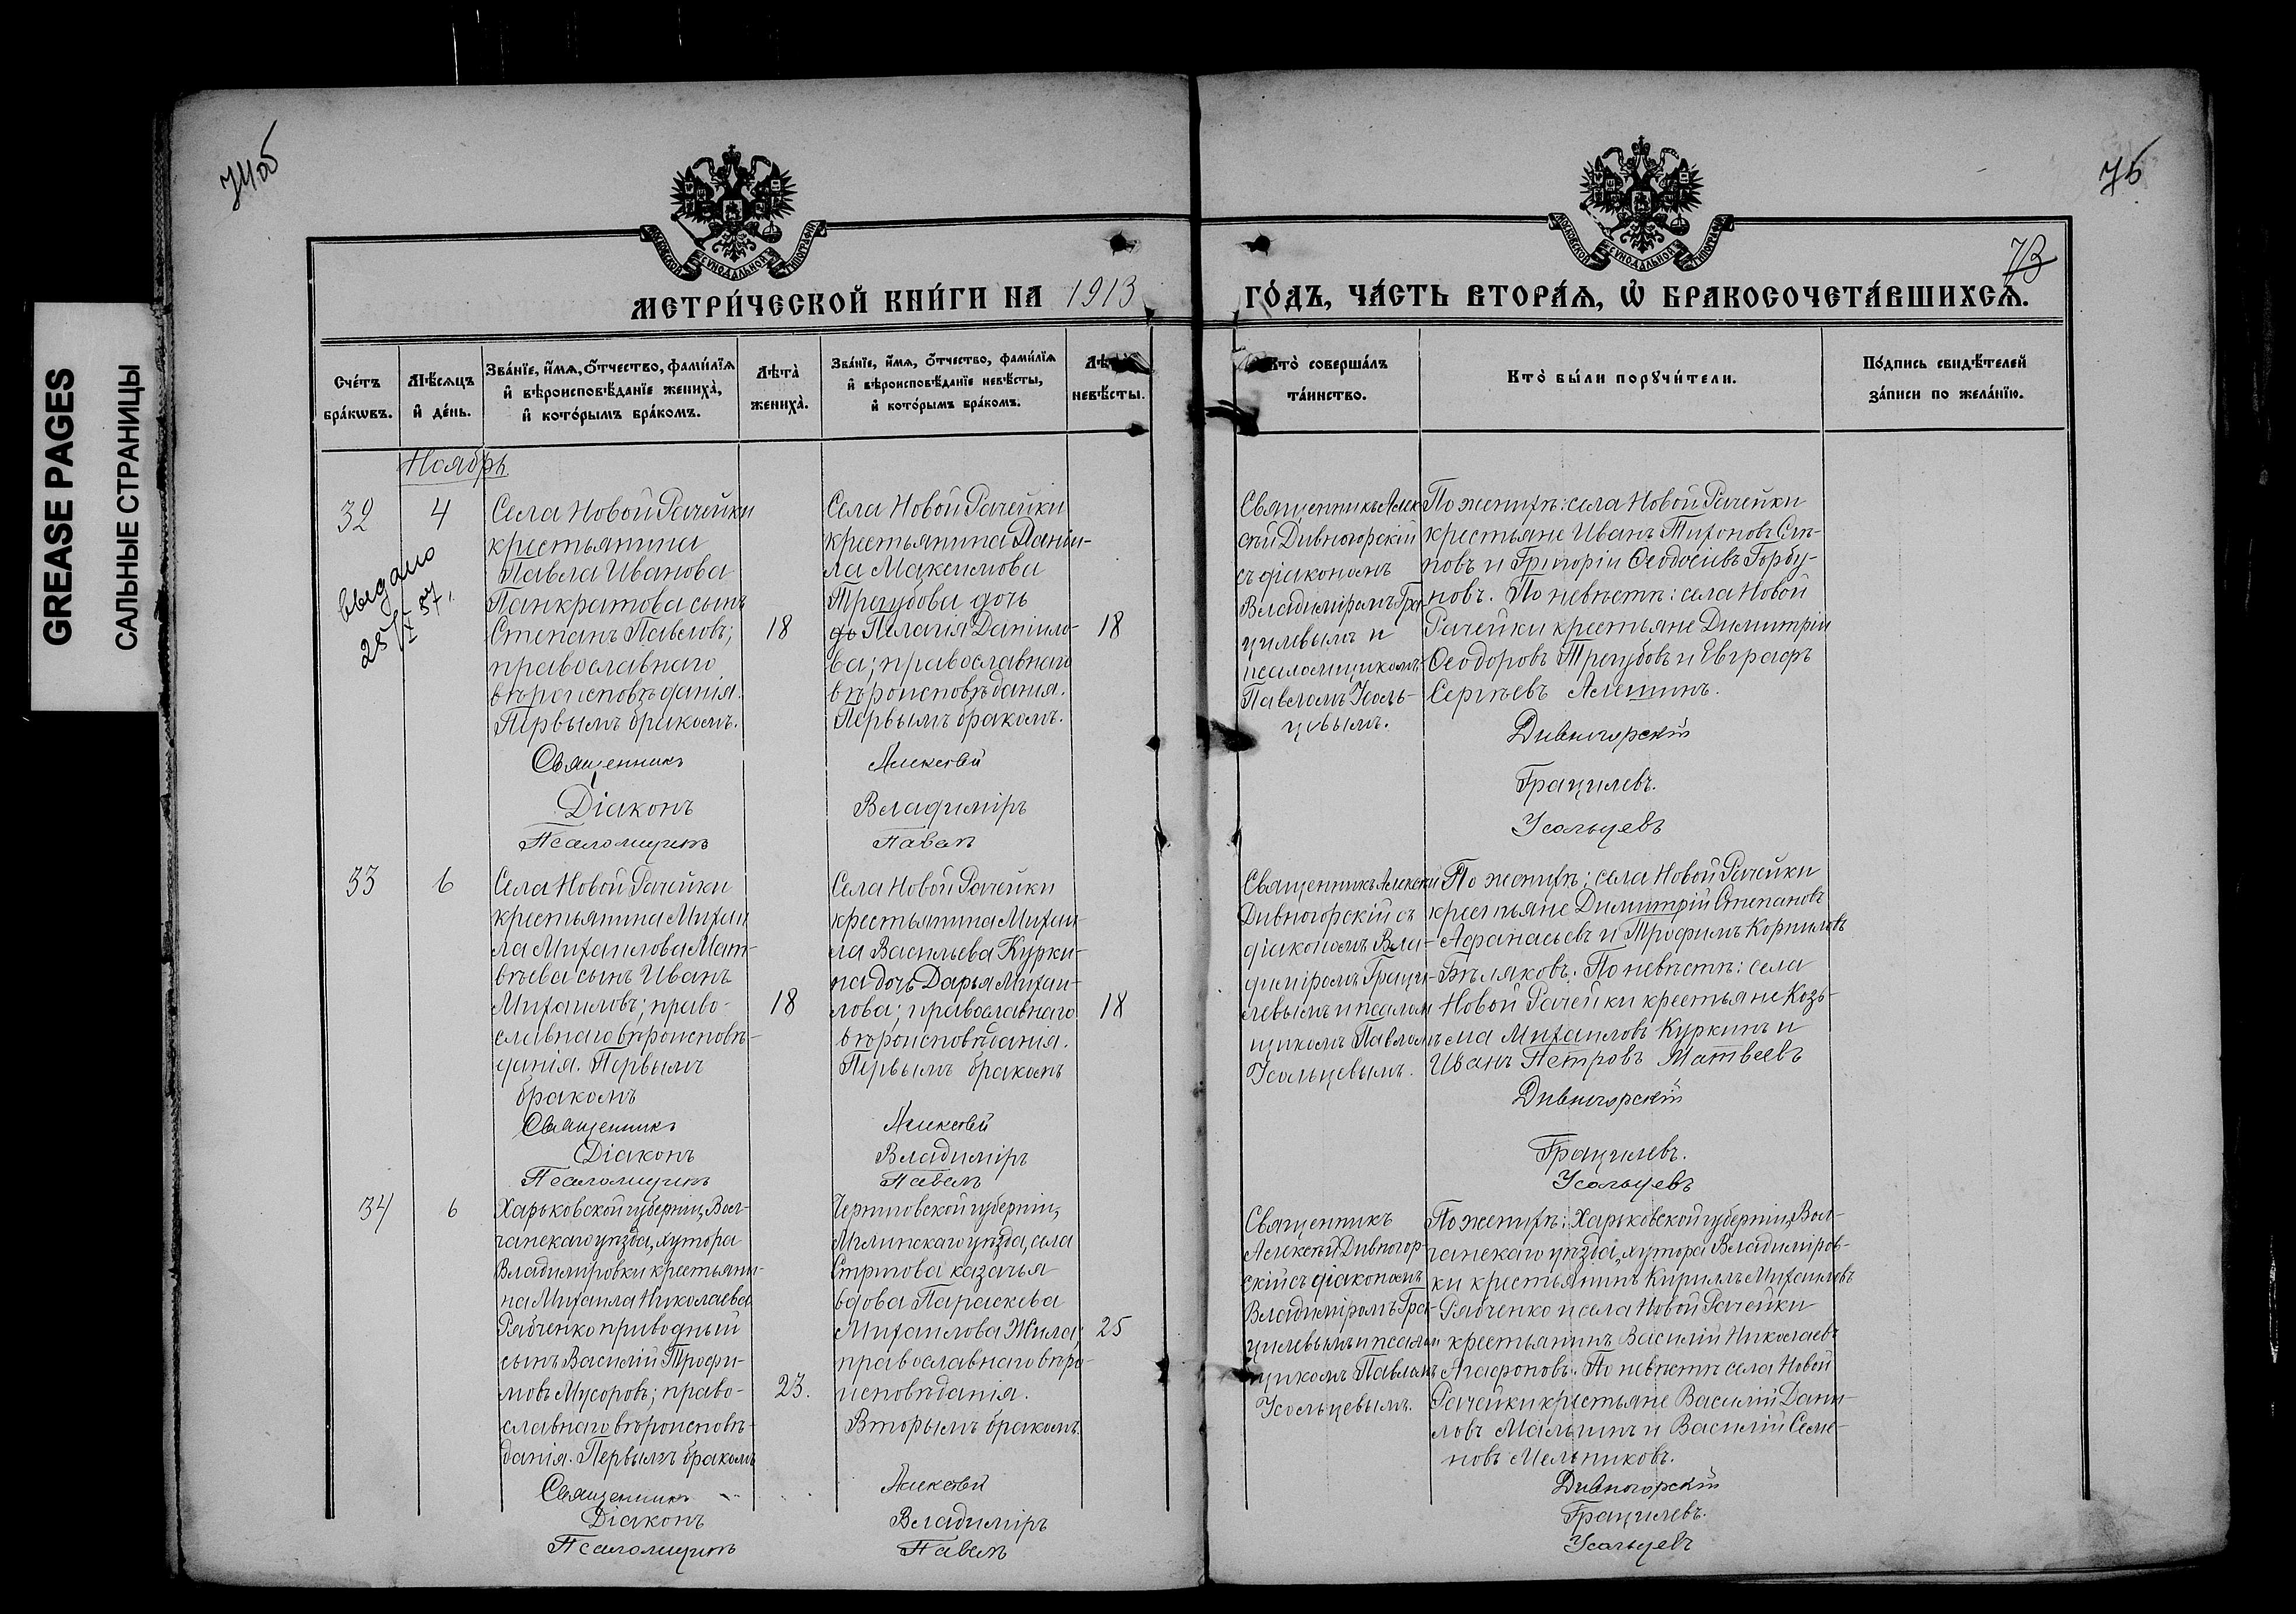 GREASE PAGES
САЛЬНЫЕ СТРАНИЦЫ
74об
75
73
МОСКОВСКОЙ СУНОДАЛЬНОЙ ТИПОГРАФІИ
МОСКОВСКОЙ СУНОДАЛЬНОЙ ТИПОГРАФІИ
МЕТРИ́ЧЕСКОЙ КНИ́ГИ НА 1913
ГО́ДЪ, ЧА́СТЬ ВТОРА́Ѧ, Ѽ БРАКОСОЧЕТА́ВШИХСѦ.
Сче́тъ
бра́кѡвъ.
Мѣ́сѧцъ
и҆ де́нь.
Зва́нїе, и҆́мѧ, ѻ҆́тчество, фами́лїѧ
и҆ вѣроисповѣ́данїе жениха̀,
и҆ кото́рымъ бра́комъ.
Лѣта̀
жениха̀.
Зва́нїе, и҆́мѧ, ѻ҆́тчество, фами́лїѧ
и҆ вѣроисповѣ́данїе невѣ́сты,
и҆ кото́рымъ бра́комъ.
невѣ́сты.
Кто̀ соверша́лъ
та́инство.
Кто̀ бы́ли порꙋчи́тели.
По́дпись свидѣ́телей
за́писи по жела́нїю.
Ноябрь.
32
4
выдано
28/IX 37.
Села Новой Рачейки
крестьянина
Павла Иванова
Панкратова сынъ
Степанъ Павловъ;
православнаго
вѣроисповѣданія.
Первымъ бракомъ.
18
Села Новой Рачейки
крестьянина Дании-
ла Максимова
Трегубова дочь
Пелагія Даніило-
ва; православнаго
вѣроисповѣданія.
Первымъ бракомъ.
18
Священникъ Алек-
сѣй Дивногорскій
съ діакономъ
Владиміромъ Гра-
цилевымъ и
псаломщикомъ
Павломъ Усоль-
цевымъ.
По женихѣ: села Новой Рачейки
крестьяне Иванъ Тихоновъ
и Григорій Ѳеодосіевъ Горбу-
новъ. По невѣстѣ: села Новой
Рачейки крестьяне Димитрій
Ѳеодоровъ Трегубовъ и Евграфъ
Сергѣевъ Алешинъ.
Священникъ Алексѣй Дивногорскій
Діаконъ Владиміръ Грацилевъ.
Псаломщикъ Павелъ Усольцевъ
33
6
Села Новой Рачейки
крестьянина Михаи
ла Михаилова Мат-
вѣева сынъ Иванъ
Михаиловъ; право-
славнаго вѣроисповѣ-
данія. Первымъ
бракомъ
18
Села Новой Рачейки
крестьянина Михаи-
ла Васильева Курки-
на дочь Дарья Михаи-
лова; православнаго
вѣроисповѣданія.
Первымъ бракомъ
18
Священникъ Алексѣй
Дивногорскій съ
діакономъ Вла-
диміромъ Граци-
левымъ и псалом
щикомъ Павломъ
Усольцевымъ.
По женихѣ: села Новой Рачейки
крестьяне Димитрій Степановъ
Афанасьевъ и Трофимъ Корниловъ
Бѣляковъ. По невѣстѣ: села
Новой Рачейки крестьяне Козь-
ма Михаиловъ Куркинъ и
Иванъ Петровъ Матвеевъ
Священникъ Алексѣй Дивногорскій
Діаконъ Владиміръ Грацилевъ.
Псаломщикъ Павелъ Усольцевъ
34
6
Харьковской губерніи, Вол-
чанскаго уѣзда, хутора
Владиміровки крестьяни-
на Михаила Николаева
Рябченко приводный
сынъ Василій Трофи-
мовъ Мусоровъ; право-
славнаго вѣроисповѣ-
данія. Первымъ бракомъ
23.
Черниговской губерніи,
Мглинскаго уѣзда, села
казачья
вдова Параскева
Михаилова Жила;
православнаго вѣро-
исповѣданія.
Вторымъ бракомъ.
25
Священникъ
Алексѣй Дивногор-
скій съ діакономъ
Владиміромъ Гра-
цилевымъ и псалом
щикомъ Павломъ
Усольцевымъ.
По женихѣ: Харьковской губерніи, Вол-
чанскаго уѣзда, хутора Владиміров-
ки крестьянинъ Кириллъ Михаиловъ
Рябченко и села Новой Рачейки
крестьянинъ Василій Николаевъ
Агафоновъ. По невѣстѣ села Новой
Рачейки крестьяне Василій Дани-
ловъ Мальчинъ и Василій Семе-
новъ Мельниковъ.
Священникъ Алексѣй Дивногорскій
Діаконъ Владиміръ Грацилевъ.
Псаломщикъ Павелъ Усольцевъ